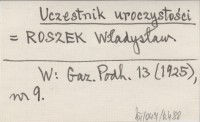 Uczestnik uroczystości
= ROSZEK Władysław
W: Gaz. Podh. 13 (1925),
nr 9.